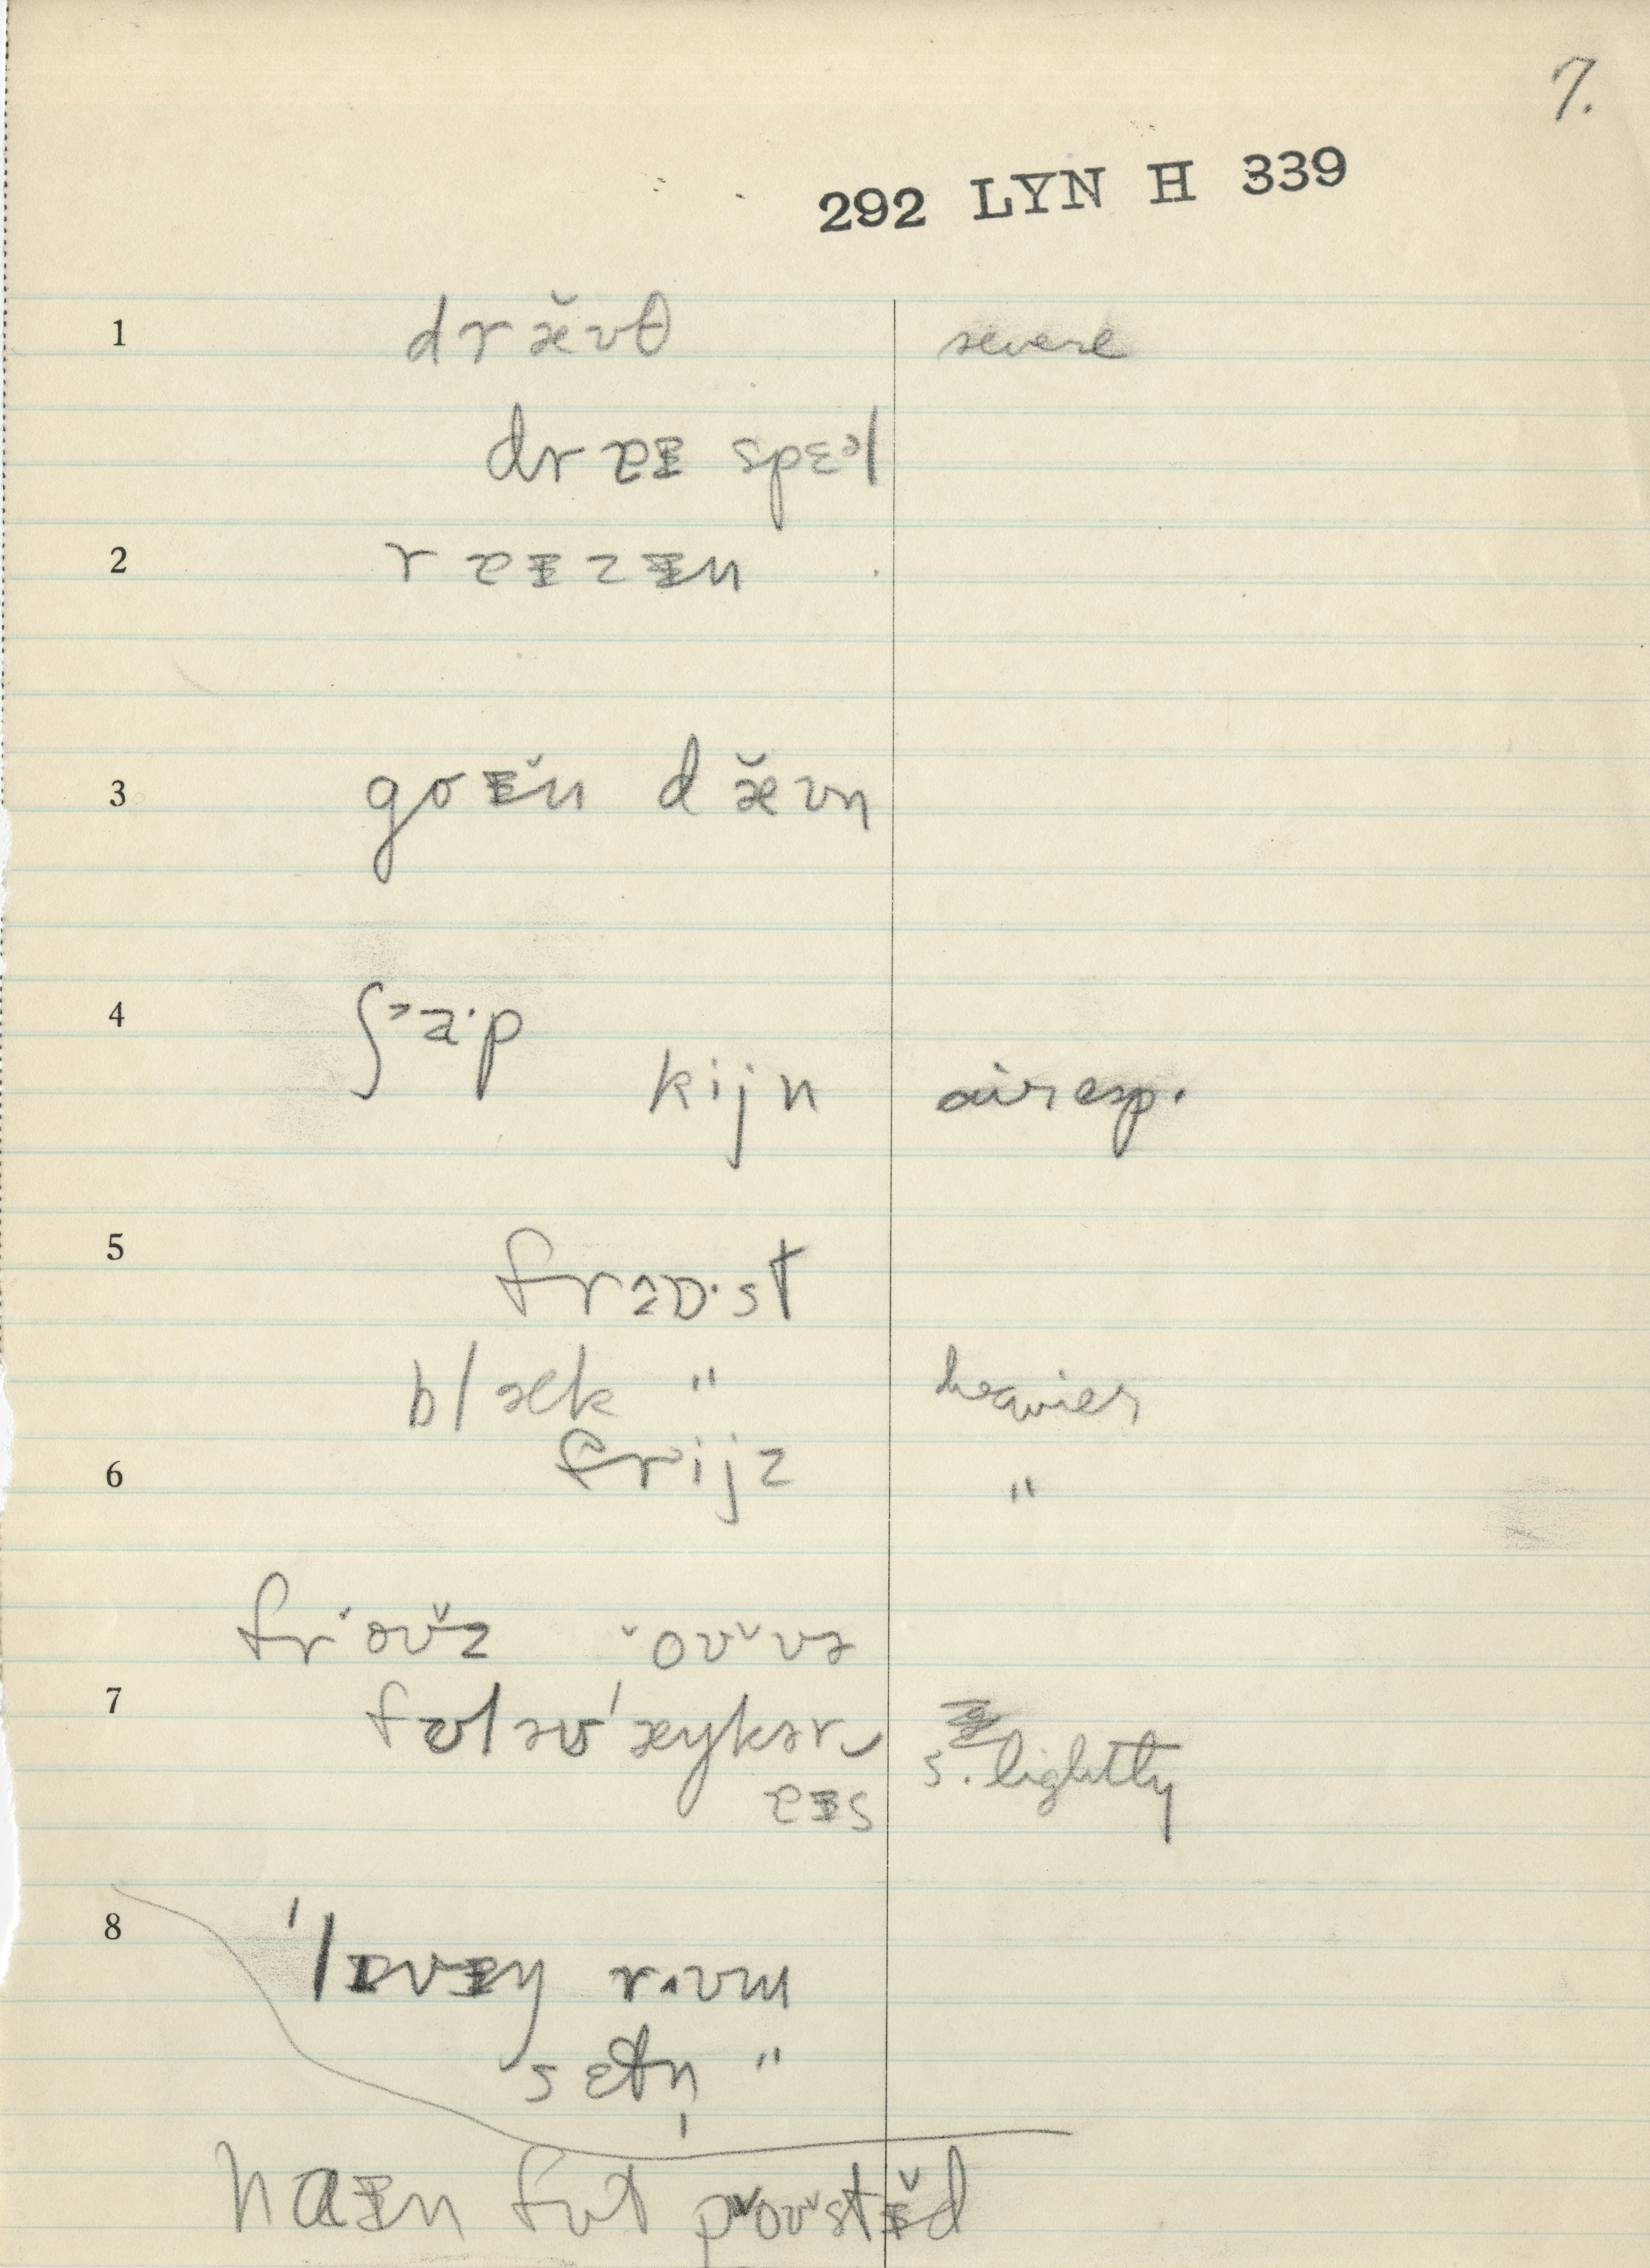 7.
292 LYN H 339
1 dræ̆ʊθ severe
draɪ spɛəl
2 raɪzɪn
3 goɪ̆n dæ̆ʊn
4 ʃɜa·p
kijn air esp.
5 frɔɒ·st
blæk " heavier
6 frijz "
froʊ̆z oʊ̆və
7
aɪs s. lightly
8 ˈlɪvɪŋ rʊm
sɛtn̩ "
naɪn fʊt poʊ̆stɪ̆d